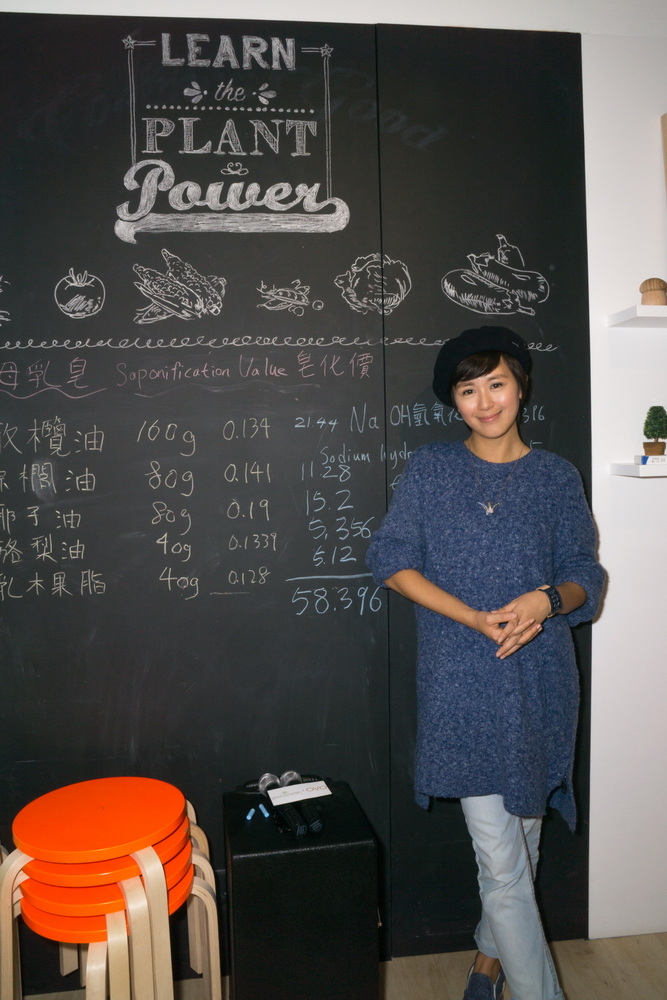 LEARN
the
PLANT
Power
母乳皂 Saponification Value 皂化價
欖油 160g 0.134 21.44
櫚油 80g 0.141 11.28
椰子油 80g 0.19 15.2
酪梨油 40g 0.1339 5.356
乳木果脂 40g 0.128 5.12
58.396
Na OH 氫氧化
Sodium hydr
OVO